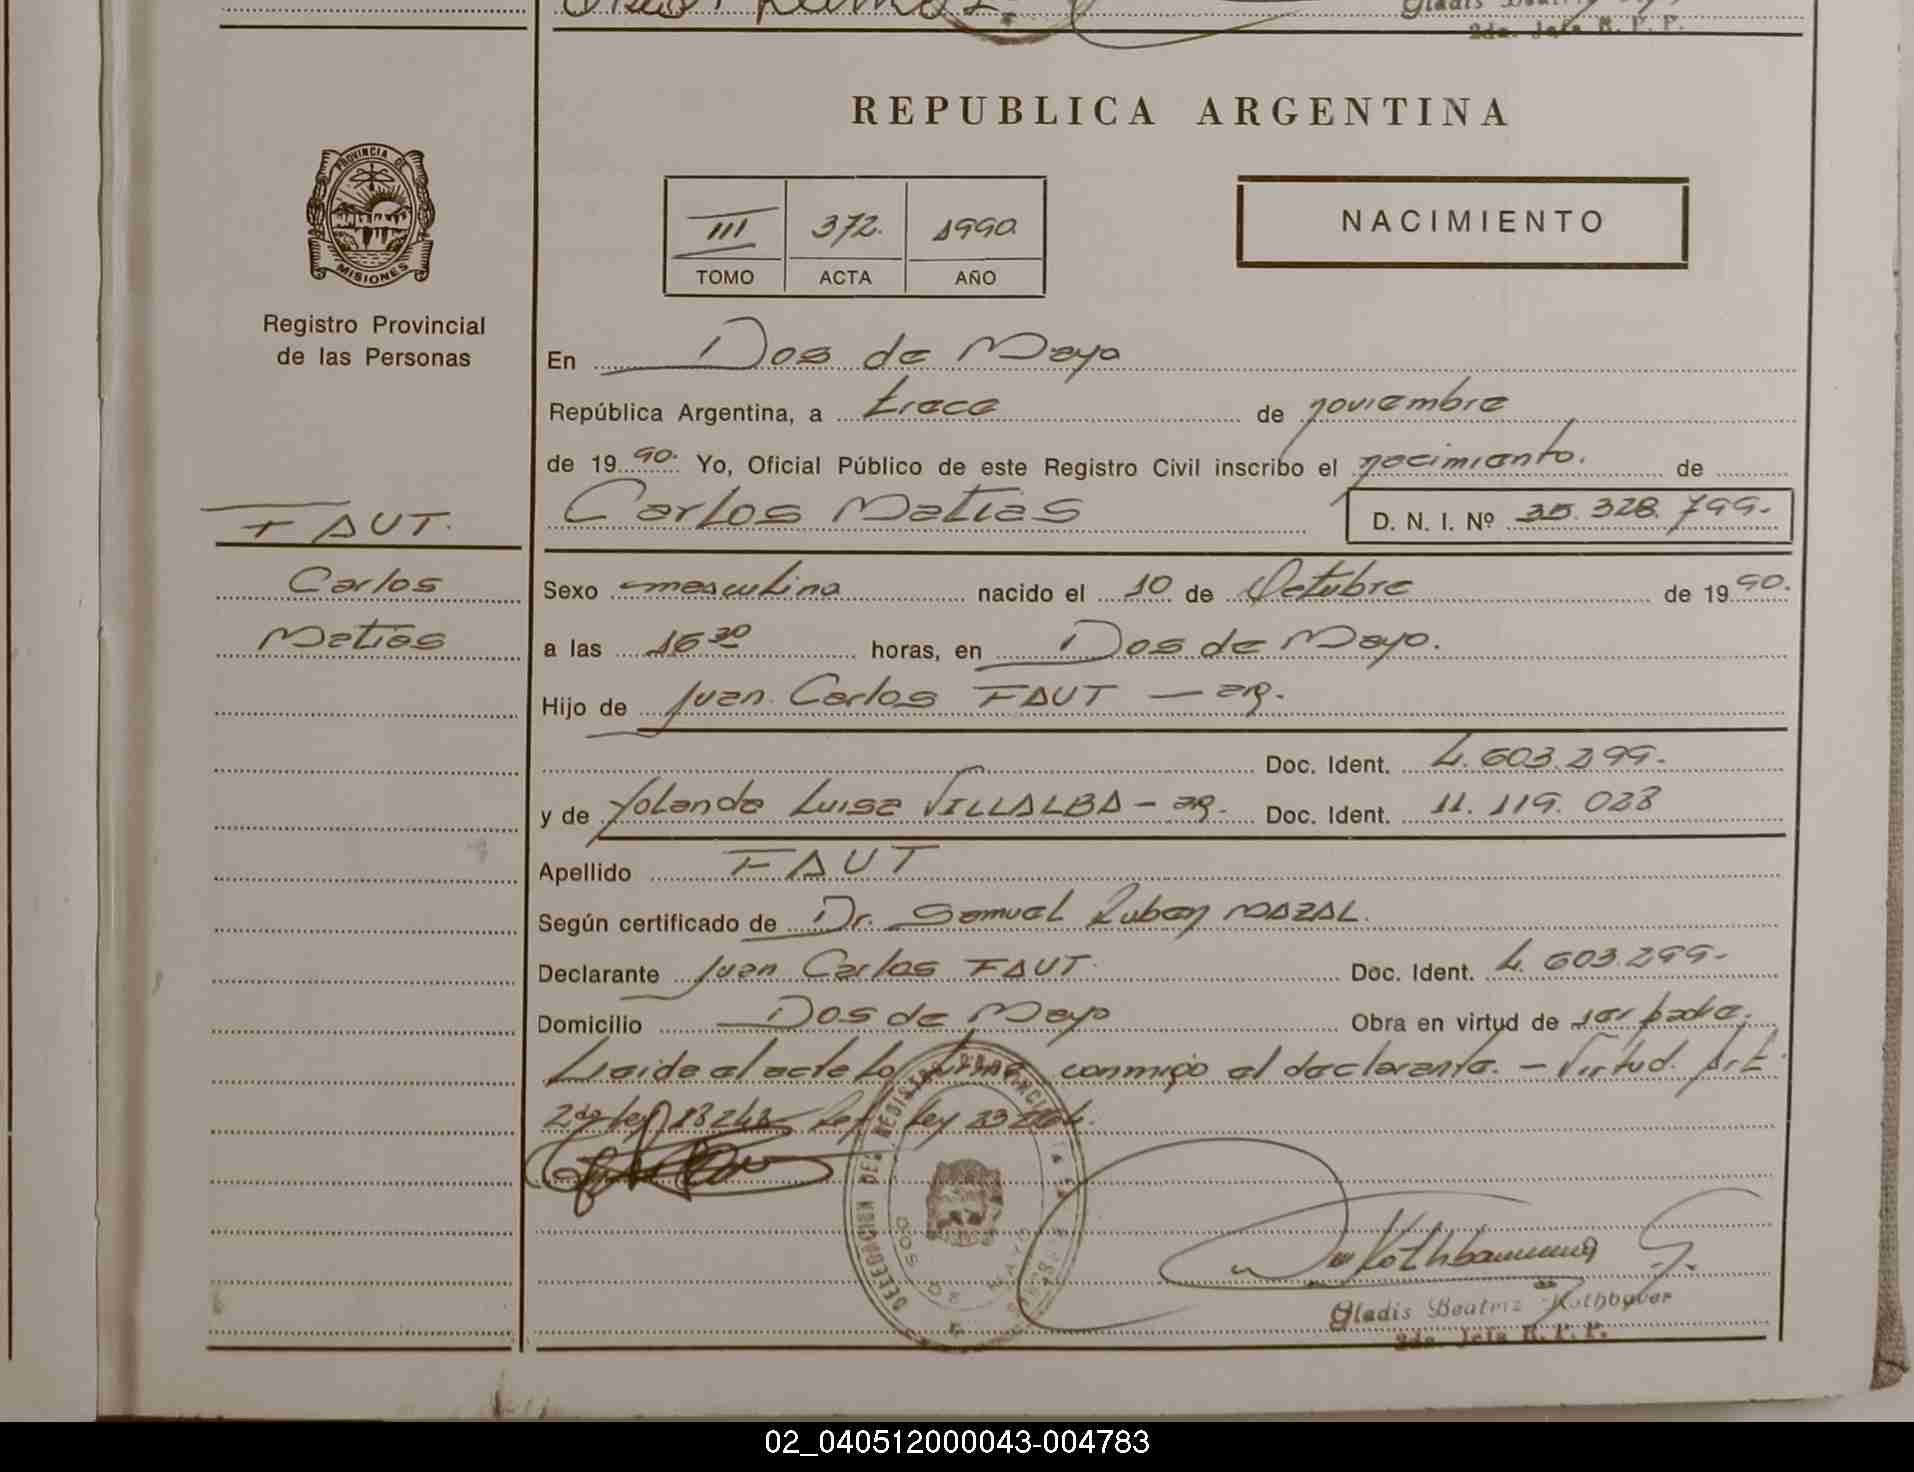 Gladis
2da. Jefa R. P. P.
REPUBLICA ARGENTINA
PROVINCIA DE
MISIONES
III 372. 1990.
TOMO ACTA AÑO
NACIMIENTO
Registro Provincial
de las Personas
En Dos de Mayo
República Argentina, a trece de noviembre
de 19 90. Yo, Oficial Público de este Registro Civil inscribo el nacimiento. de
Carlos Matias D. N. I. Nº 35.328.799.-
FAUT.
Carlos
Matias
Sexo masculino nacido el 10 de Octubre de 19 90.
a las 16 30 horas, en Dos de Mayo.
Hijo de Juan Carlos FAUT — arg.
Doc. Ident. 4.603.299.-
y de Yolanda Luisa VILLALBA - arg. Doc. Ident. 11.119.028
Apellido FAUT
Según certificado de Dr. Samuel Ruben NAZAL.
Declarante Juan Carlos FAUT. Doc. Ident. 4.603.299.-
Domicilio Dos de Mayo Obra en virtud de ser padre.
Leida el acta la firma conmigo el declarante. - Virtud. Art.
2do ley 18248 Ref. ley 23
DELEGACION DEL REGISTRO PROVINCIAL
DOS DE MAYO
Rothbauer G.
Gladis Beatriz Rothbauer
2da. Jefa R. P. P.
02_040512000043-004783